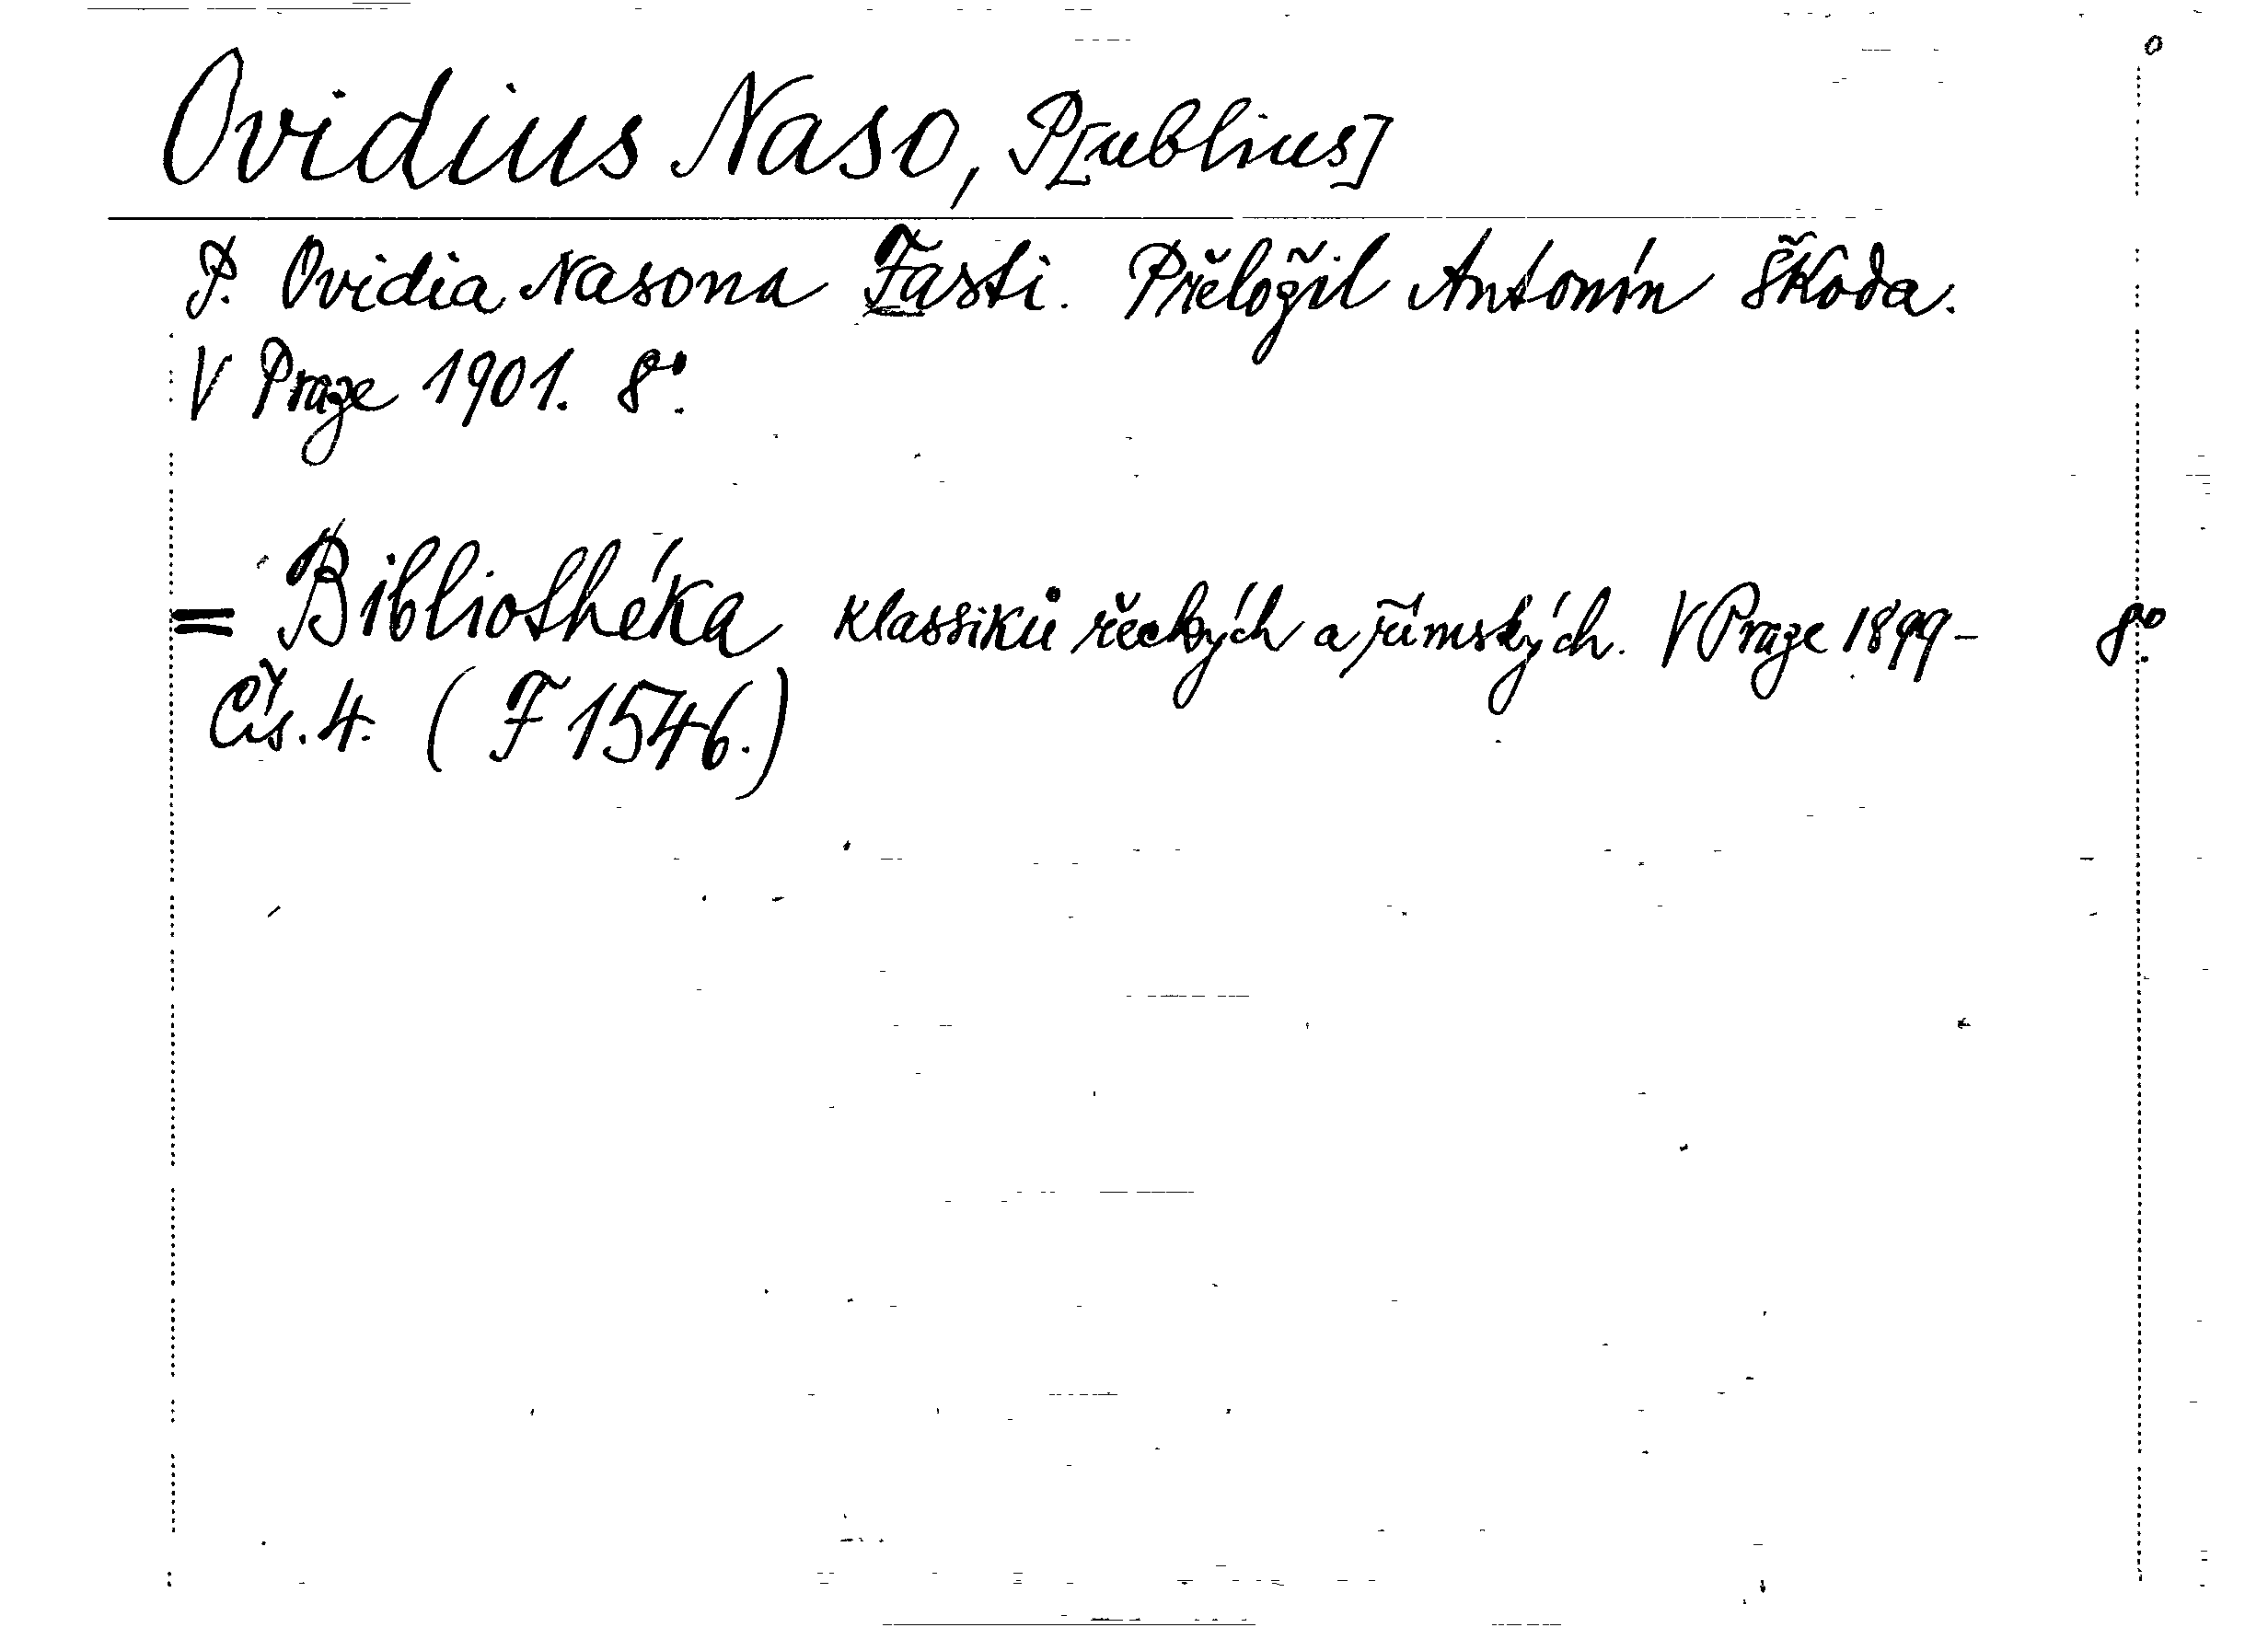 Ovidius Naso, P[ublius]
P. Ovidia Nasona Fasti. Přeložil Antonín Škoda.
V Praze 1901. 8°.
= Bibliothéka klassiků řeckých a římských. V Praze 1899- 8°.
Čís. 4. (F 1546.)